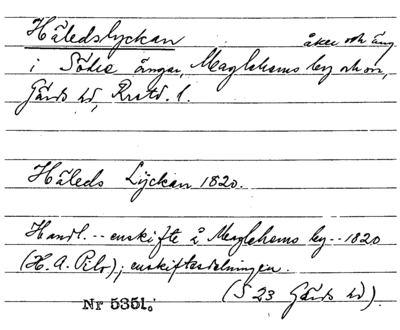 Håledslyckan åker och äng
i Södra ängar, Maglehems by och sn,
Gärds hd, Krstd. l.
Håleds Lÿckan 1820.
Handl. -- enskifte å Maglehems by -- 1820
(H. A. Pihr); enskiftesdelningen.
(S 23 Gärds hd).
Nr 5351.